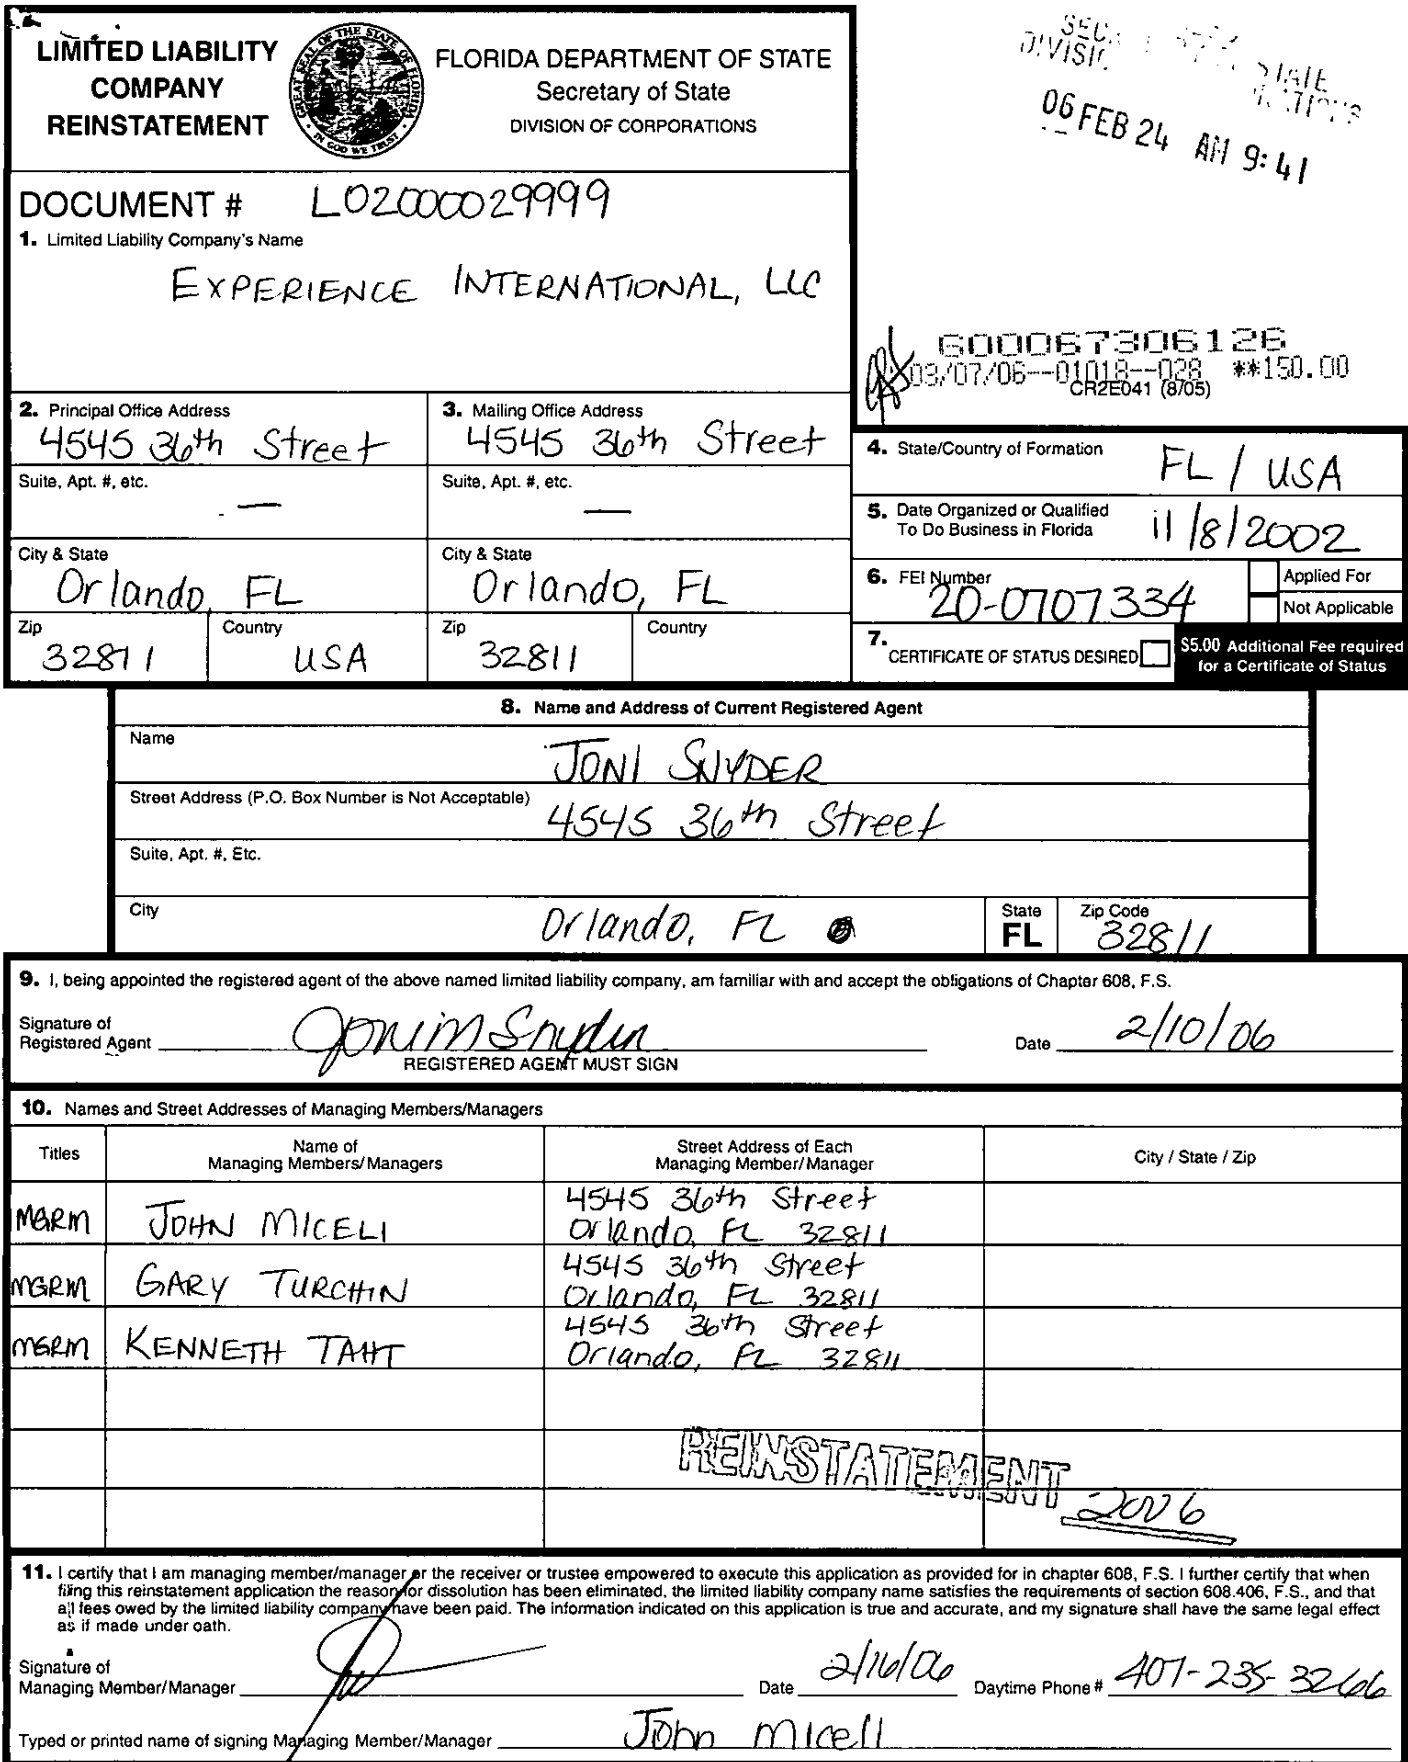 LIMITED LIABILITY
COMPANY
REINSTATEMENT
GREAT SEAL OF THE STATE OF FLORIDA
IN GOD WE TRUST
FLORIDA DEPARTMENT OF STATE
Secretary of State
DIVISION OF CORPORATIONS
STATE
06 FEB 24 AM 9:41
DOCUMENT # L02000029999
1. Limited Liability Company's Name
EXPERIENCE INTERNATIONAL, LLC
600067306126
03/07/06--01018--028 **150.00
CR2E041 (8/05)
2. Principal Office Address
4545 36th Street
Suite, Apt. #, etc.
—
City & State
Orlando, FL
Zip
32811
Country
USA
3. Mailing Office Address
4545 36th Street
Suite, Apt. #, etc.
—
City & State
Orlando, FL
Zip
32811
Country
4. State/Country of Formation FL / USA
5. Date Organized or Qualified
To Do Business in Florida 11/8/2002
6. FEI Number
20-0707334
Applied For
Not Applicable
7. CERTIFICATE OF STATUS DESIRED
$5.00 Additional Fee required
for a Certificate of Status
8. Name and Address of Current Registered Agent
Name
JONI SNYDER
Street Address (P.O. Box Number is Not Acceptable)
4545 36th Street
Suite, Apt. #, Etc.
City
Orlando, FL
State
FL
Zip Code
32811
9. I, being appointed the registered agent of the above named limited liability company, am familiar with and accept the obligations of Chapter 608, F.S.
Signature of
Registered Agent Joni M Snyder
REGISTERED AGENT MUST SIGN
Date 2/10/06
10. Names and Street Addresses of Managing Members/Managers
Titles
Name of
Managing Members/Managers
Street Address of Each
Managing Member/Manager
City / State / Zip
MGRM JOHN MICELI 4545 36th Street
Orlando, FL 32811
MGRM GARY TURCHIN 4545 36th Street
Orlando, FL 32811
MGRM KENNETH TAHT 4545 36th Street
Orlando, FL 32811
REINSTATEMENT 2006
11. I certify that I am managing member/manager or the receiver or trustee empowered to execute this application as provided for in chapter 608, F.S. I further certify that when
filing this reinstatement application the reason for dissolution has been eliminated, the limited liability company name satisfies the requirements of section 608.406, F.S., and that
all fees owed by the limited liability company have been paid. The information indicated on this application is true and accurate, and my signature shall have the same legal effect
as if made under oath.
Signature of
Managing Member/Manager
Date 2/16/06
Daytime Phone # 407-235-3266
Typed or printed name of signing Managing Member/Manager John Miceli